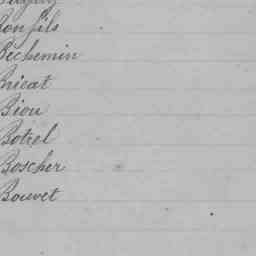 Bon fils
Bechemin
Bricat
Biou
Botrel
Boscher
Bouvet